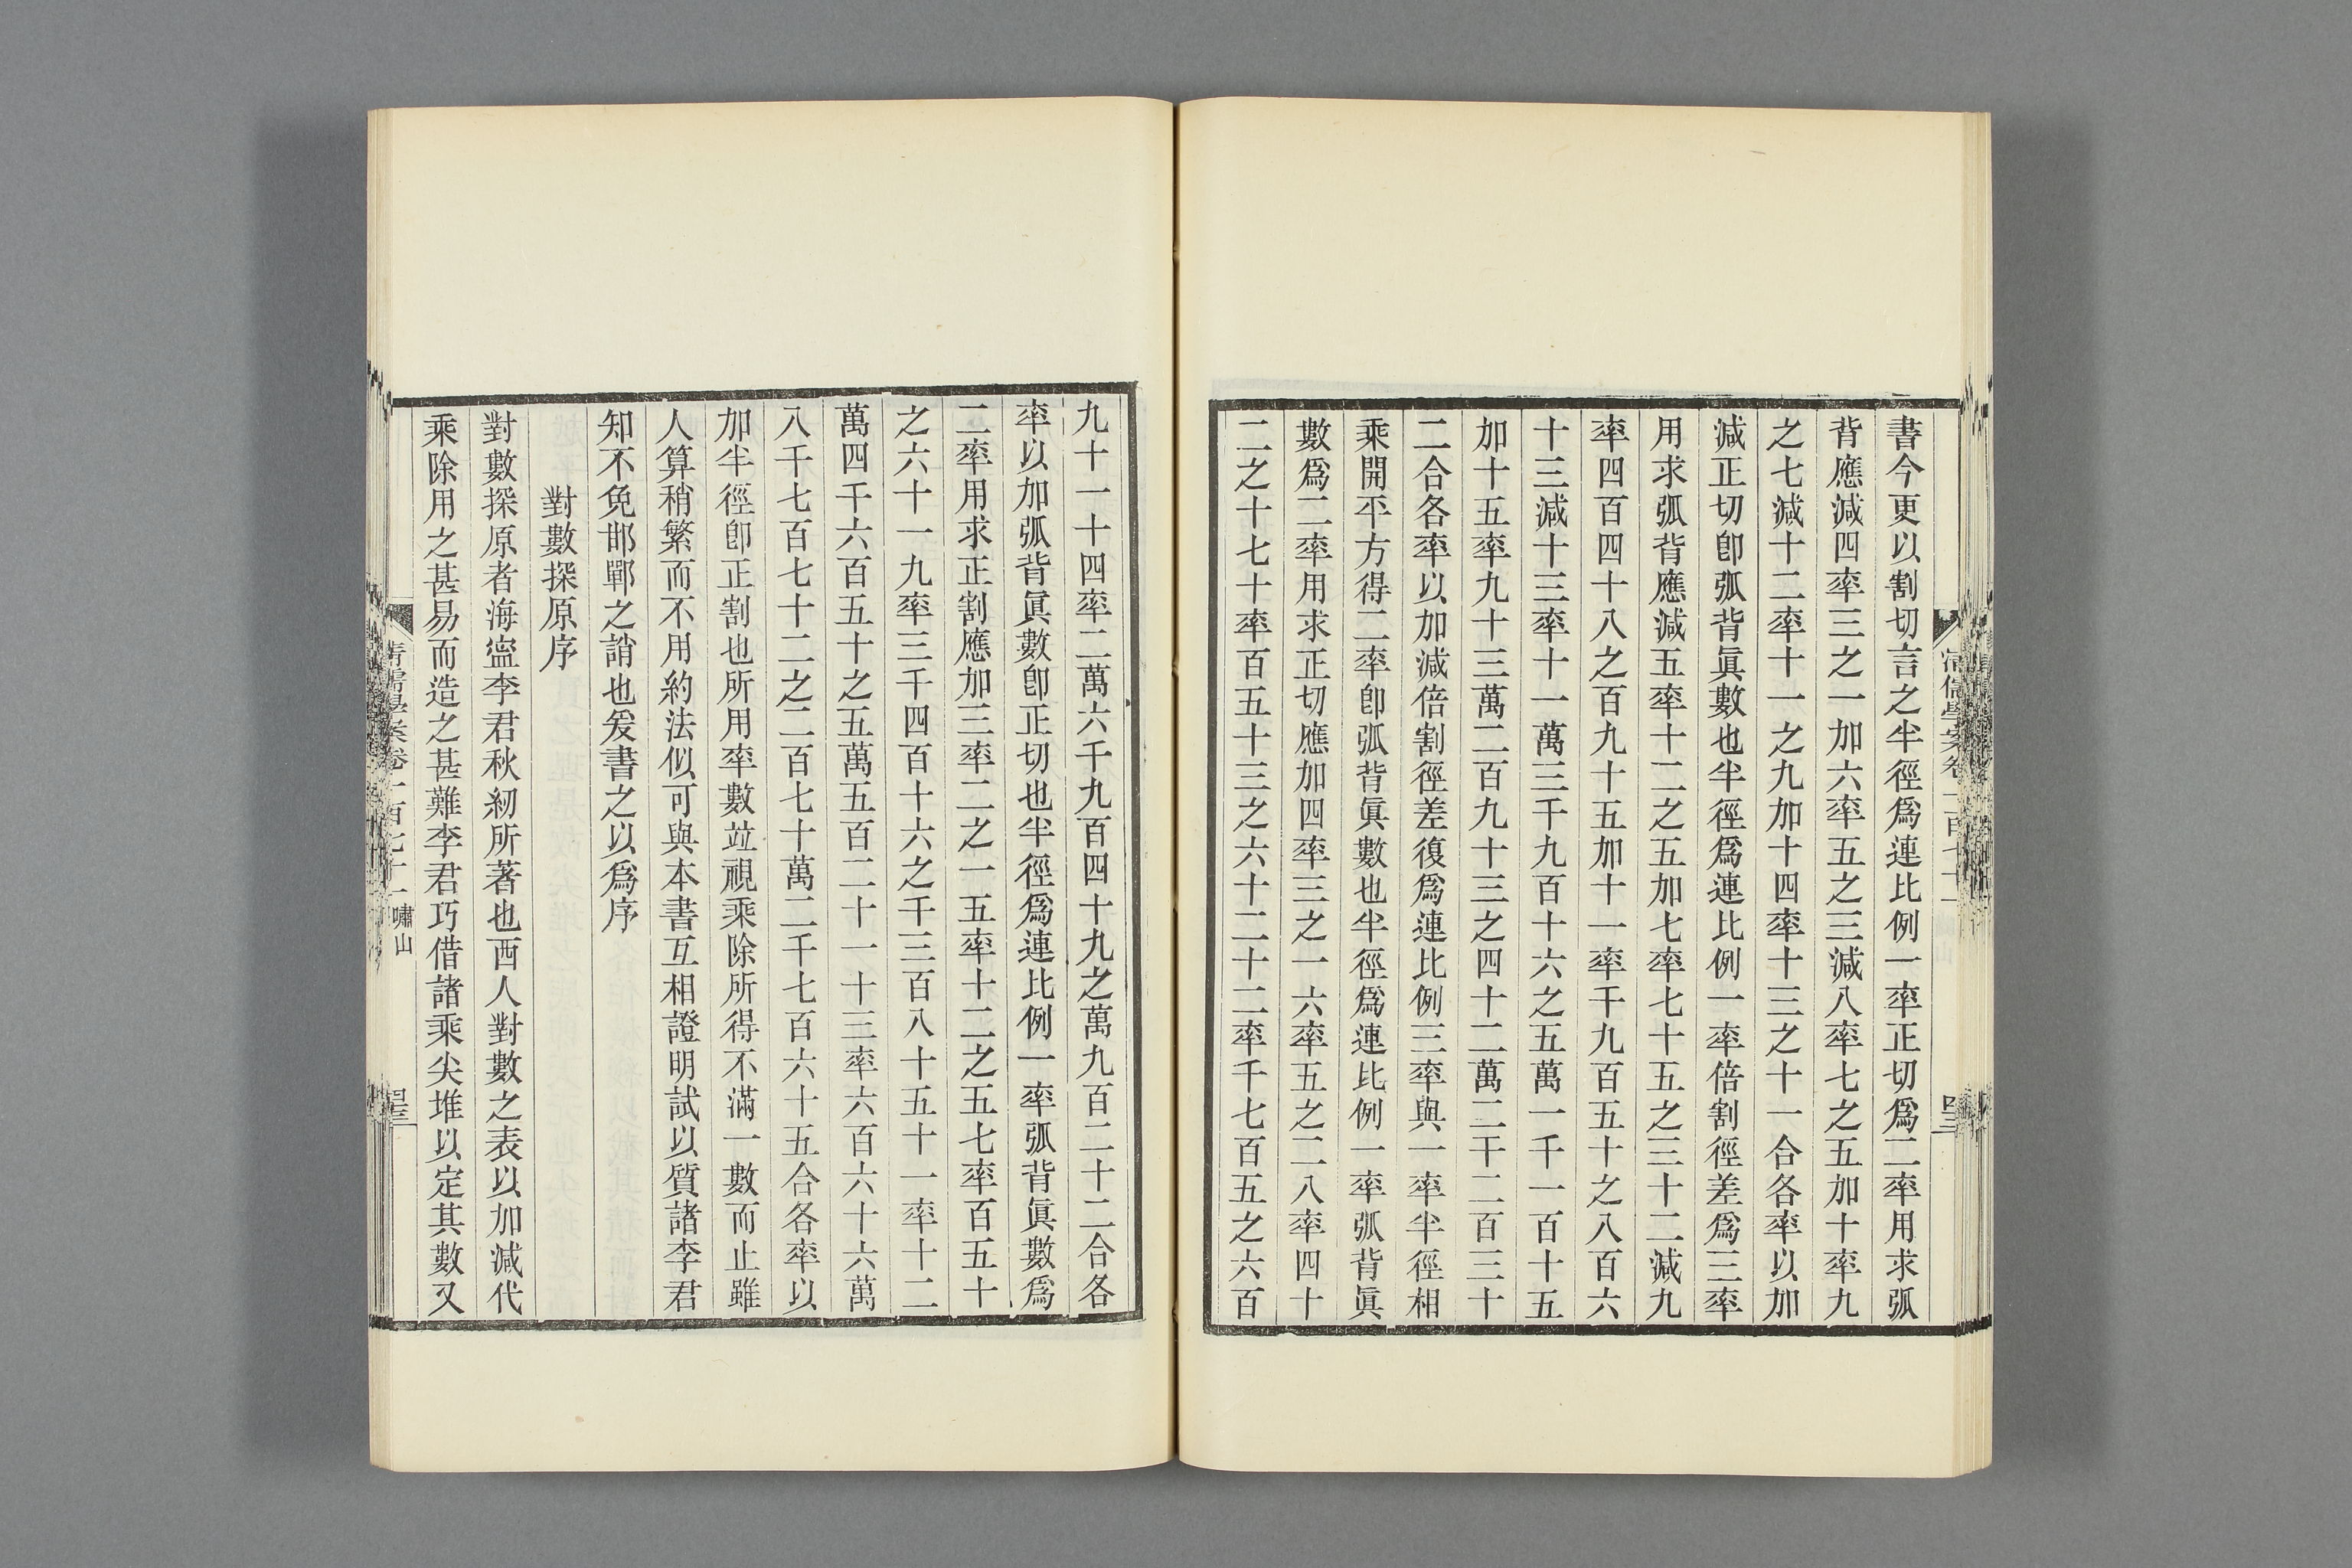 書今更以割切言之半徑爲連比例一率正切爲二率用求弧
背應減四率三之一加六率五之三減八率七之五加十率九
之七減十二率十一之九加十四率十三之十一合各率以加
減正切卽弧背眞數也半徑爲連比例一率倍割徑差爲三率
用求弧背應減五率十二之五加七率七十五之三十二減九
率四百四十八之百九十五加十一率千九百五十之八百六
十三減十三率十一萬三千九百十六之五萬一千一百十五
加十五率九十三萬二百九十三之四十二萬二千二百三十
二合各率以加減倍割徑差復爲連比例三率與一率半徑相
乘開平方得二率卽弧背眞數也半徑爲連比例一率弧背眞
數爲二率用求正切應加四率三之一六率五之二八率四十
二之十七十率百五十三之六十二十二率千七百五之六百
九十一十四率二萬六千九百四十九之萬九百二十二合各
率以加弧背眞數卽正切也半徑爲連比例一率弧背眞數爲
二率用求正割應加三率二之一五率十二之五七率百五十
之六十一九率三千四百十六之千三百八十五十一率十二
萬四千六百五十之五萬五百二十一十三率六百六十六萬
八千七百七十二之二百七十萬二千七百六十五合各率以
加半徑卽正割也所用率數竝視乘除所得不滿一數而止雖
人算稍繁而不用約法似可與本書互相證明試以質諸李君
知不免邯鄲之誚也爰書之以爲序
對數探原序
對數探原者海寧李君秋紉所著也西人對數之表以加減代
乘除用之甚易而造之甚難李君巧借諸乘尖堆以定其數又
清儒學案卷一百七十一 嘯山